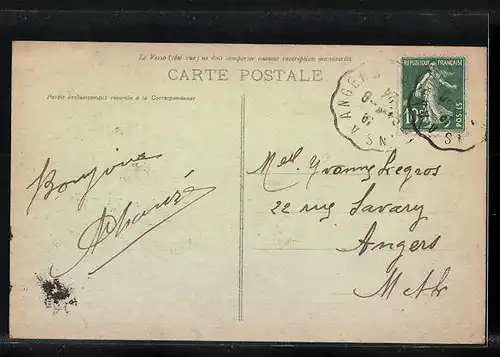 Le Verso (côté vue) ne doit comporter aucune inscription manuscrite
CARTE POSTALE
Partie exclusivement réservée à la Correspondance
RÉPUBLIQUE FRANÇAISE
POSTES
15c
ANGERS
Bonjour
Mell. Yvonne Legros
22 rue Savary
Angers
M et L